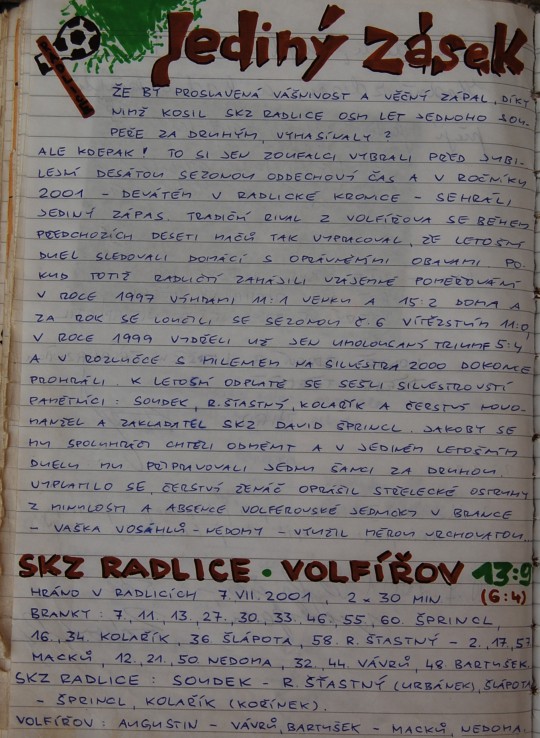 Jediný zásek
ŽE BY PROSLAVENÁ VÁŠNIVOST A VĚČNÝ ZÁPAL, DÍKY
NIMŽ KOSIL SKZ RADLICE OSM LET JEDNOHO SOU-
PEŘE ZA DRUHÝM, VYHASÍNALY?
ALE KDEPAK! TO SI JEN ZOUFALCI VYBRALI PŘED JUBI-
LEJNÍ DESÁTOU SEZONOU ODDECHOVÝ ČAS A V ROČNÍKU
2001 - DEVÁTÉM V RADLICKÉ KRONICE - SEHRÁLI
JEDINÝ ZÁPAS. TRADIČNÍ RIVAL Z VOLFÍŘOVA SE BĚHEM
PŘEDCHOZÍCH DESETI MAČŮ TAK VYPRACOVAL, ŽE LETOŠNÍ
DUEL SLEDOVALI DOMÁCÍ S OPRÁVNĚNÝMI OBAVAMI. PO-
KUD TOTIŽ RADLIČTÍ ZAHÁJILI VZÁJEMNÉ POMĚŘOVÁNÍ
V ROCE 1997 VÝHRAMI 11:1 VENKU A 15:2 DOMA A
ZA ROK SE LOUČILI SE SEZONOU Č. 6 VÍTĚZSTVÍM 11:0,
V ROCE 1999 VYDŘELI UŽ JEN UHOLOUCANÝ TRIUMF 5:4
A V ROZLUČCE S MILÉNIEM NA SILVESTRA 2000 DOKONCE
PROHRÁLI. K LETOŠNÍ ODPLATĚ SE SEŠLI SILVESTROVŠTÍ
PAMĚTNÍCI: SOUDEK, R. ŠŤASTNÝ, KOLAŘÍK A ČERSTVÝ NOVO-
MANŽEL A ZAKLADATEL SKZ DAVID ŠPRINCL. JAKOBY SE
MU SPOLUHRÁČI CHTĚLI ODMĚNIT A V JEDINÉM LETOŠNÍM
DUELU MU PŘIPRAVOVALI JEDNU ŠANCI ZA DRUHOU.
VYPLATILO SE, ČERSTVÝ ŽENÁČ OPRÁŠIL STŘELECKÉ OSTRUHY
Z MINULOSTI A ABSENCE VOLFÍŘOVSKÉ JEDNIČKY V BRANCE
- VAŠKA VOSÁHLŮ-NEDOMY - VYUŽIL MĚROU VRCHOVATOU.
SKZ RADLICE • VOLFÍŘOV 13:9
HRÁNO V RADLICÍCH 7. VII. 2001, 2 x 30 MIN (6:4)
BRANKY: 7., 11., 13., 27., 30., 33., 46., 55., 60. ŠPRINCL,
16., 34. KOLAŘÍK, 36. ŠLÁPOTA, 58. R. ŠŤASTNÝ - 2., 17., 57.
MACKŮ, 12., 21., 50. NEDOMA, 32., 44. VÁVRŮ, 48. BARTUŠEK.
SKZ RADLICE: SOUDEK - R. ŠŤASTNÝ (URBÁNEK), ŠLÁPOTA
- ŠPRINCL, KOLAŘÍK (KOŘÍNEK).
VOLFÍŘOV: AUGUSTIN - VÁVRŮ, BARTUŠEK - MACKŮ, NEDOMA.